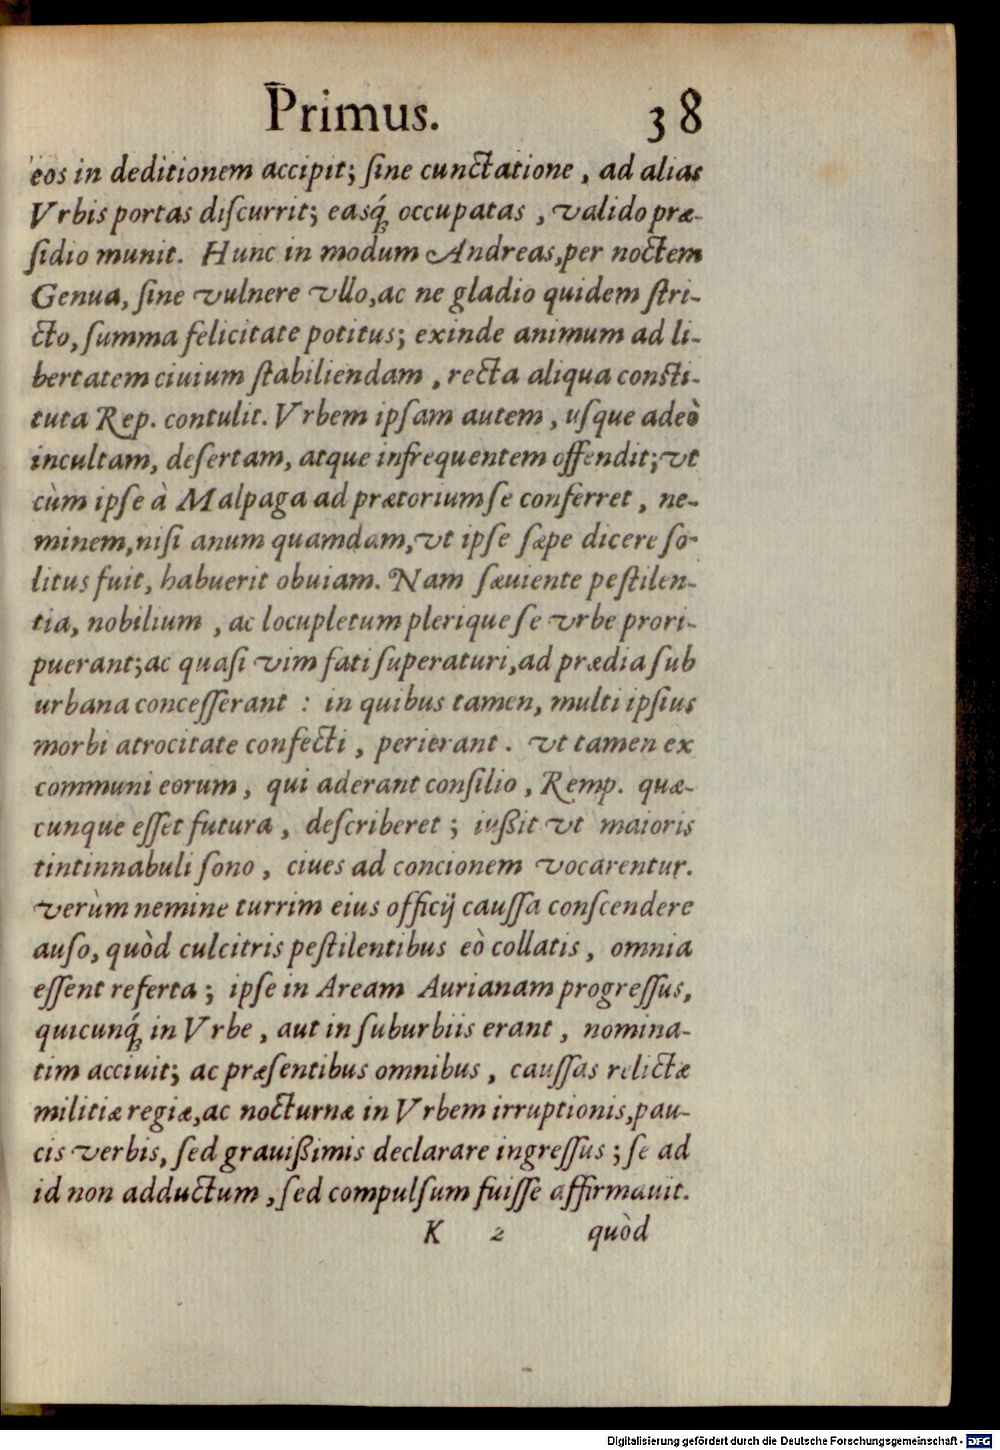 Primus. 38
eos in deditionem accipit; ſine cunctatione, ad alias
Vrbis portas diſcurrit; easq́; occupatas, valido præ-
ſidio munit. Hunc in modum Andreas, per noctem
Genua, ſine vulnere vllo, ac ne gladio quidem ſtri-
cto, ſumma felicitate potitus; exinde animum ad li-
bertatem ciuium ſtabiliendam, recta aliqua conſti-
tuta Rep. contulit. Vrbem ipſam autem, uſque adeò
incultam, deſertam, atque infrequentem offendit; vt
cùm ipſe à Malpaga ad prætorium ſe conferret, ne-
minem, niſi anum quamdam, vt ipſe ſæpe dicere ſo-
litus fuit, habuerit obuiam. Nam ſæuiente peſtilen-
tia, nobilium, ac locupletum plerique ſe vrbe prori-
puerant; ac quaſi vim fati ſuperaturi, ad prædia ſub
urbana conceſſerant : in quibus tamen, multi ipſius
morbi atrocitate confecti, perierant. vt tamen ex
communi eorum, qui aderant conſilio, Remp. quæ-
cunque eſſet futura, deſcriberet; iußit vt maioris
tintinnabuli ſono, ciues ad concionem vocarentur.
verùm nemine turrim eius officij cauſſa conſcendere
auſo, quòd culcitris peſtilentibus eò collatis, omnia
eſſent referta; ipſe in Aream Aurianam progreſſus,
quicunq́; in Vrbe, aut in ſuburbiis erant, nomina-
tim acciuit; ac præſentibus omnibus, cauſſas relictæ
militiæ regiæ, ac nocturnæ in Vrbem irruptionis, pau-
cis verbis, ſed grauißimis declarare ingreſſus; ſe ad
id non adductum, ſed compulſum fuiſſe affirmauit.
K 2 quòd
Digitalisierung gefördert durch die Deutsche Forschungsgemeinschaft - DFG